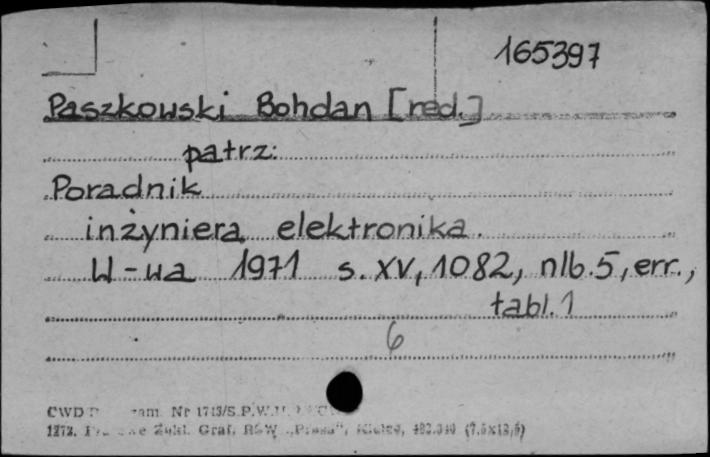 165397
Paszkowski Bohdan [red.]
patrz:
Poradnik
inżyniera elektronika.
W-wa 1971 s. XV, 1082, nlb. 5, err.,
tabl. 1
6
CWD zam. Nr 1713/S.P.W.
Zakł. Graf. RSW „Prasa", Kielce, (7,5x12,5)